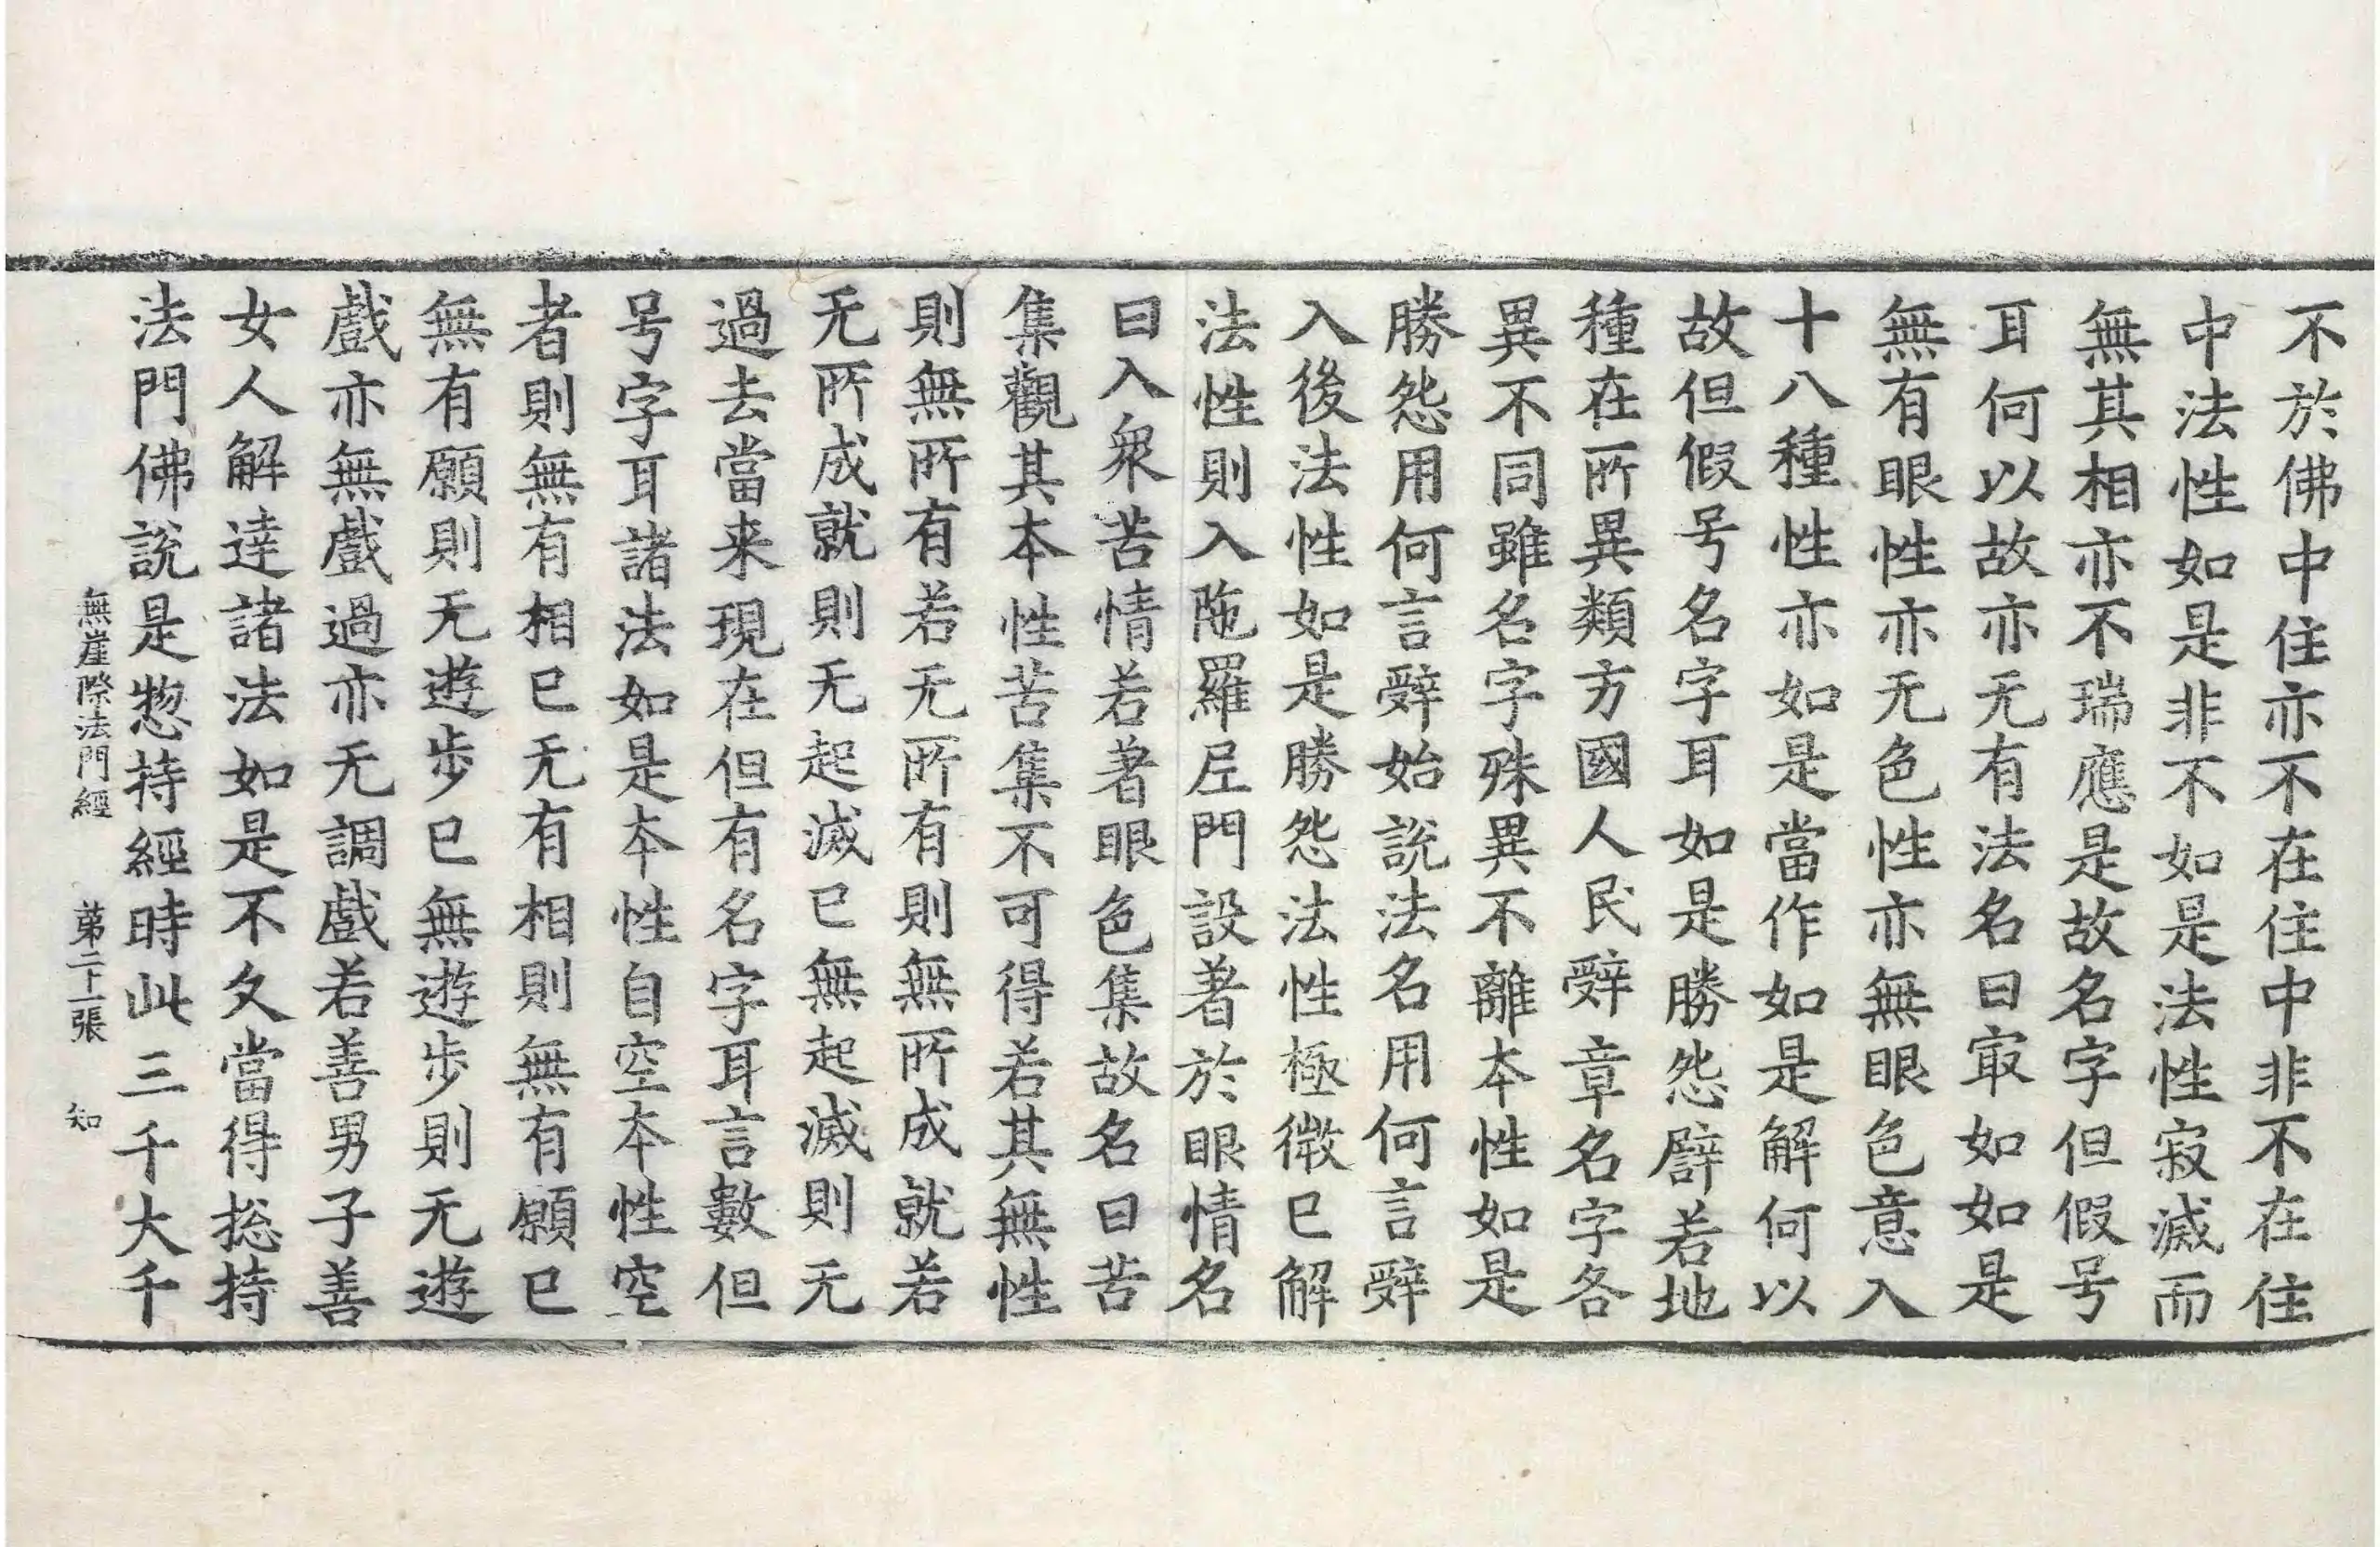 不於佛中住亦不在住中非不在住
中法性如是非不如是法性寂滅而
無其相亦不瑞應是故名字但假号
耳何以故亦无有法名曰㝡如如是
無有眼性亦无色性亦無眼色意入
十八種性亦如是當作如是解何以
故但假号名字耳如是勝怨譬若地
種在所異類方國人民辭章名字各
異不同雖名字殊異不離本性如是
勝怨用何言辭始說法名用何言辭
入後法性如是勝怨法性極微已解
法性則入陁羅尼門設著於眼情名
曰入衆苦情若著眼色集故名曰苦
集觀其本性苦集不可得若其無性
則無所有若无所有則無所成就若
无所成就則无起滅已無起滅則无
過去當来現在但有名字耳言數但
号字耳諸法如是本性自空本性空
者則無有相已无有相則無有願已
無有願則无遊步已無遊步則无遊
戲亦無戲過亦无調戲若善男子善
女人解達諸法如是不久當得捴持
法門佛說是惣持經時此三千大千
無崖際法門經 苐二十一張 知